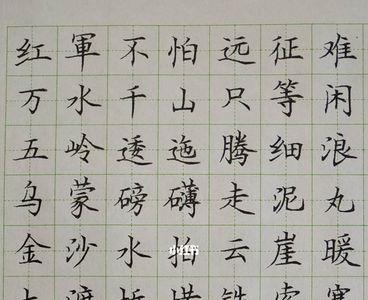 红軍不怕远征难
万水千山只等闲
五岭逶迤腾细浪
乌蒙磅礴走泥丸
金沙水拍云崖暖